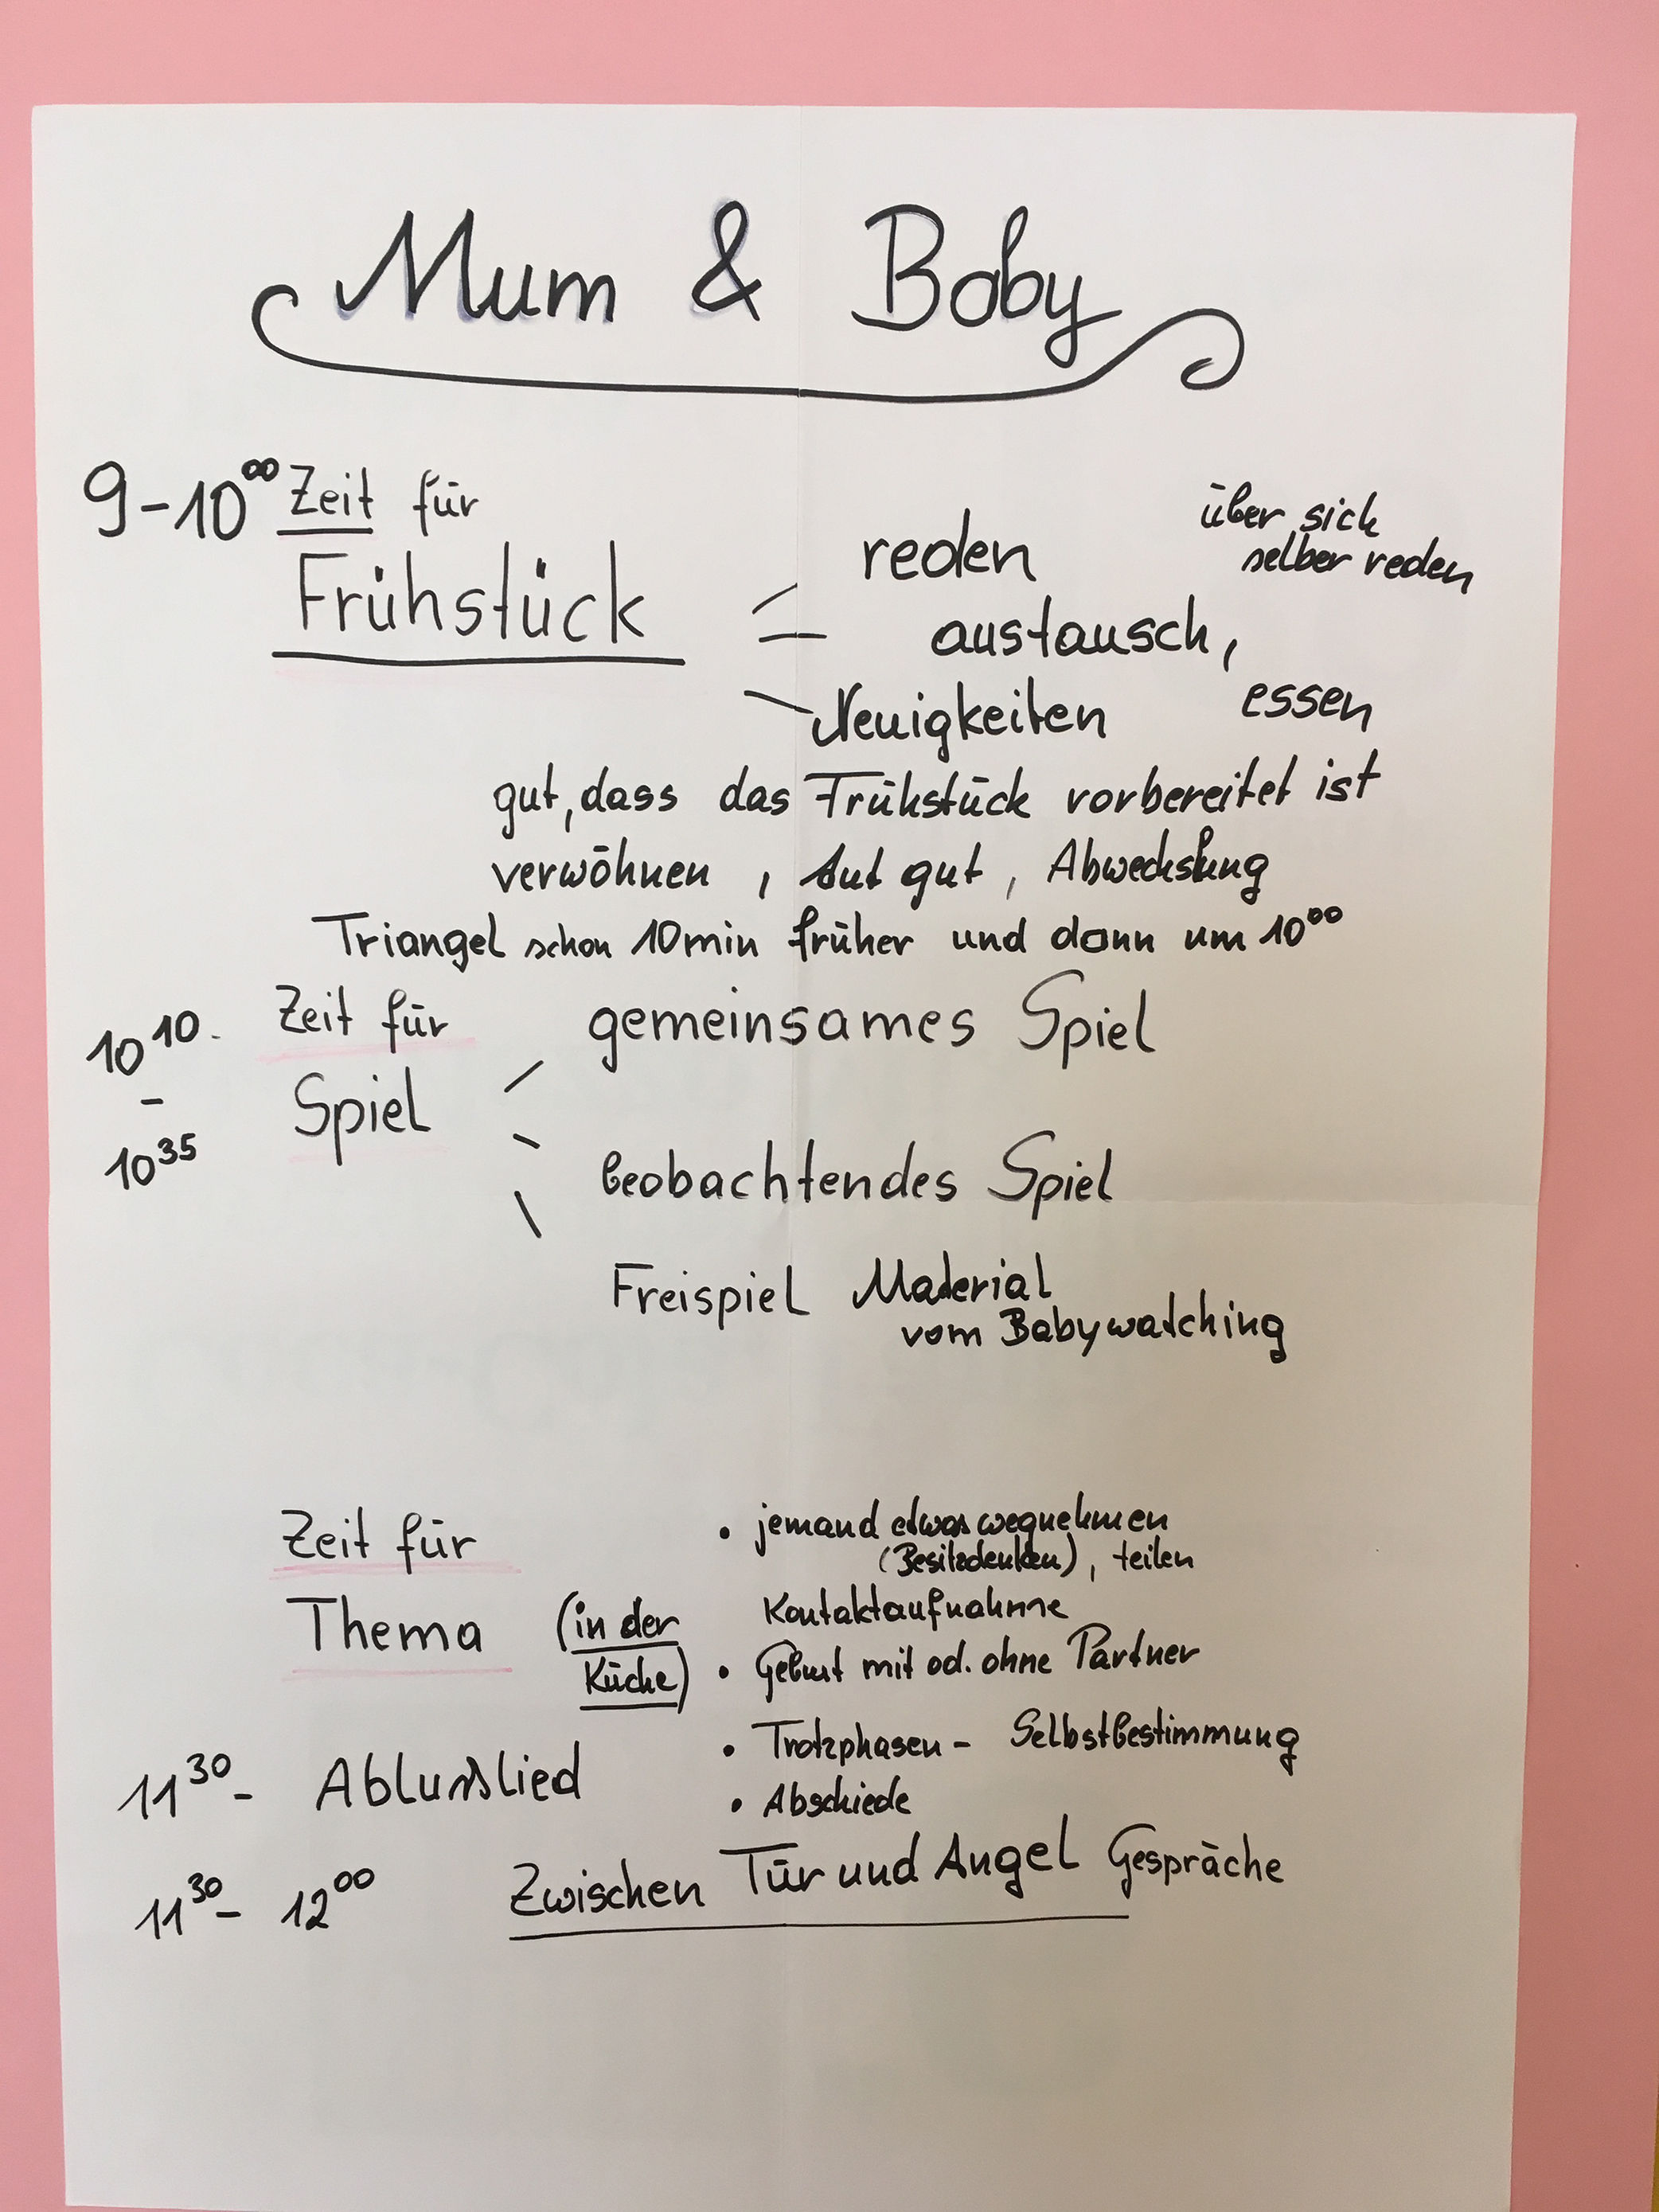 Mum & Baby
9-10⁰⁰ Zeit für
Frühstück
reden
über sich
selber reden
austausch,
Neuigkeiten essen
gut, dass das Frühstück vorbereitet ist
verwöhnen, tut gut, Abwechslung
Triangel schon 10min früher und dann um 10⁰⁰
10¹⁰ - 10³⁵
Zeit für
Spiel
gemeinsames Spiel
beobachtendes Spiel
Freispiel Material
vom Babywatching
Zeit für
Thema (in der
Küche)
• jemand etwas wegnehmen
(Besitzdenken), teilen
Kontaktaufnahme
• Geburt mit od. ohne Partner
• Trotzphasen - Selbstbestimmung
• Abschiede
11³⁰- Ablusslied
11³⁰- 12⁰⁰ Zwischen Tür und Angel Gespräche